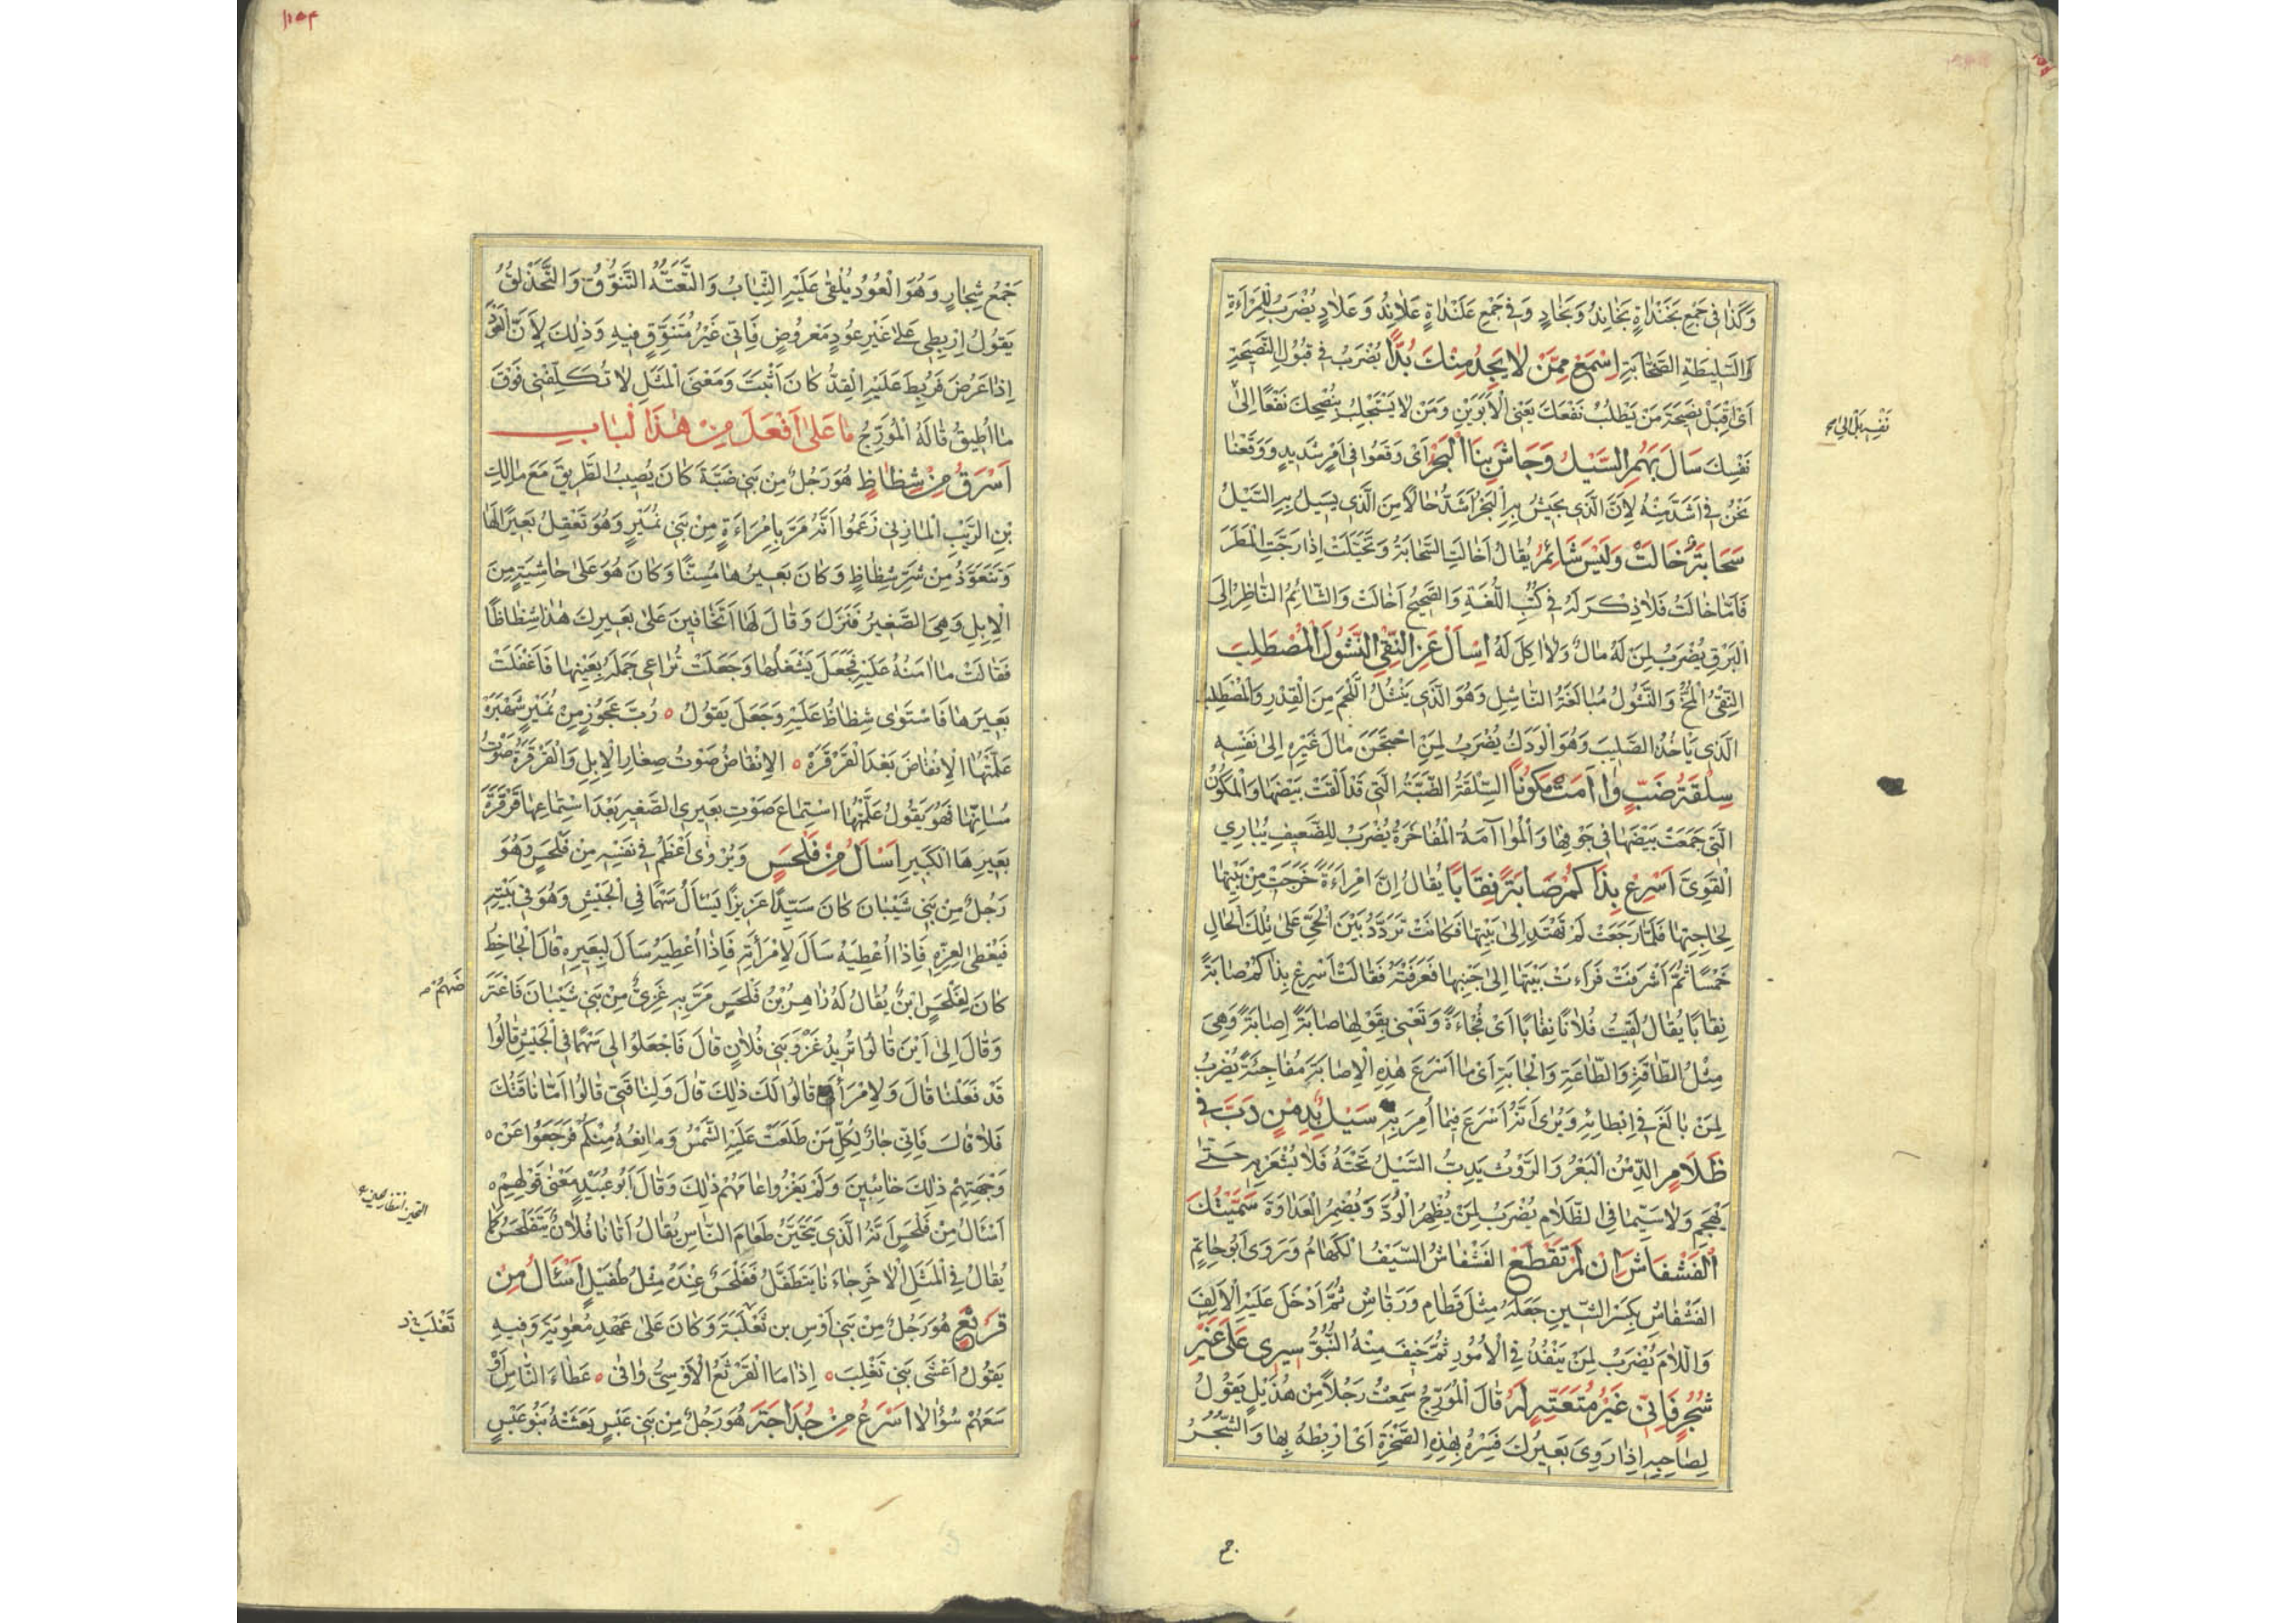 وَكَذَا فِي جَمْعِ بَخَنْدَاةٍ بَخَانِدُ وَبَخَادٍ وَفِي جَمْعِ عَلَنْدَاةٍ عَلَانِدُ وَعَلَادٍ يُضْرَبُ لِلْمَرْاَةِ
وَالسَّلِيطَةِ الصَّخَّابَةِ اِسْمَعْ مِمَّنْ لَا يَجِدُ مِنْكَ بُدًّا يُضْرَبُ فِي قَبُولِ النَّصِيحَةِ
اَيْ اِقْبَلْ نَصِيحَةَ مَنْ يَطْلُبُ نَفْعَكَ يَعْنِي الْاَبَوَيْنِ وَمَنْ لَا يَسْتَجْلِبُ بِنُصْحِكَ نَفْعًا اِلَى
نَفْسِكَ سَالَ بِهِمِ السَّيْلُ وَجَاشَ بِنَا الْبَحْرُ اَيْ وَقَعُوا فِي اَمْرٍ شَدِيدٍ وَوَقَعْنَا
نَحْنُ فِي اَشَدَّ مِنْهُ لِاَنَّ الَّذِي يَجِيشُ بِهِ الْبَحْرُ اَشَدُّ حَالًا مِنَ الَّذِي يَسِيلُ بِهِ السَّيْلُ
سَحَابَةٌ خَالَتْ وَلَيْسَ شَائِمٌ يُقَالُ اَخَالَتِ السَّحَابَةُ وَتَخَيَّلَتْ اِذَا رَجَّتِ الْمَطَرَ
فَاَمَّا خَالَتْ فَلَا ذِكْرَ لَهُ فِي كُتُبِ اللُّغَةِ وَالصَّحِيحُ اَخَالَتْ وَالشَّائِمُ النَّاظِرُ اِلَى
الْبَرْقِ يُضْرَبُ لِمَنْ لَهُ مَالٌ وَلَا اٰكِلَ لَهُ اِسْاَلْ عَنِ النِّقْيِ النَّشُولَ الْمُصْطَلِبَ
النِّقْيُ الْمُخُّ وَالنَّشُولُ مُبَالَغَةُ النَّاشِلِ وَهُوَ الَّذِي يَنْشُلُ اللَّحْمَ مِنَ الْقِدْرِ وَالْمُصْطَلِبُ
الَّذِي يَاْخُذُ الصَّلِيبَ وَهُوَ الْوَدَكُ يُضْرَبُ لِمَنِ احْتَجَنَ مَالَ غَيْرِهِ اِلَى نَفْسِهِ
سِلْقَةُ ضَبٍّ وَاءَمَتْ مَكُونًا السِّلْقَةُ الضَّبَّةُ الَّتِي قَدْ اَلْقَتْ بَيْضَهَا وَالْمَكُونُ
الَّتِي جَمَعَتْ بَيْضَهَا فِي جَوْفِهَا وَالْمُوَاآمَةُ الْمُفَاخَرَةُ يُضْرَبُ لِلضَّعِيفِ يُبَارِي
الْقَوِيَّ اَسْرِعْ بِذَاكُمْ صَابَةً نِقَابًا يُقَالُ اِنَّ امْرَاَةً خَرَجَتْ مِنْ بَيْتِهَا
لِحَاجَتِهَا فَلَمَّا رَجَعَتْ لَمْ تَهْتَدِ اِلَى بَيْتِهَا فَكَانَتْ تَرَدَّدُ بَيْنَ الْحَيِّ عَلَى تِلْكَ الْحَالِ
خَمْسًا ثُمَّ اَشْرَفَتْ فَرَاَتْ بَيْتَهَا اِلَى جَنْبِهَا فَعَرَفَتْهُ فَقَالَتْ اَسْرِعْ بِذَاكُمْ صَابَةً
نِقَابًا يُقَالُ لَقِيتُ فُلَانًا نِقَابًا اَيْ فُجَاءَةً وَتَعْنِي بِقَوْلِهَا صَابَةً اِصَابَةً وَهِيَ
مِثْلُ الطَّاقَةِ وَالطَّاعَةِ وَالْجَابَةِ اَيْ مَا اَسْرَعَ هٰذِهِ الْاِصَابَةَ مُفَاجِئَةً يُضْرَبُ
لِمَنْ بَالَغَ فِي اِبْطَائِهِ وَيُرَى اَنَّهُ اَسْرَعَ فِيمَا اُمِرَ بِهِ سَيْلٌ بِدِمْنٍ دَبَّ فِي
ظَلَامٍ الدِّمْنُ الْبَعْرُ وَالرَّوْثُ يَدِبُّ السَّيْلُ تَحْتَهُ فَلَا يُشْعَرُ بِهِ حَتَّى
يَهْجُمَ وَلَا سِيَّمَا فِي الظَّلَامِ يُضْرَبُ لِمَنْ يُظْهِرُ الْوُدَّ وَيُضْمِرُ الْعَدَاوَةَ سَمَّيْتُكَ
الْفَشْفَاشَ اِنْ لَمْ تَقْطَعْ الفَشْفَاشُ السَّيْفُ الْكَهَامُ وَرَوَى اَبُو حَاتِمٍ
الفَشْفَاشِ بِكَسْرِ الشِّينِ جَعَلَهُ مِثْلَ قَطَامِ وَرَقَاشِ ثُمَّ اَدْخَلَ عَلَيْهِ الْاَلِفَ
وَاللَّامَ يُضْرَبُ لِمَنْ يَنْفُذُ فِي الْاُمُورِ ثُمَّ خِيفَ مِنْهُ النُّبُوُّ سِيرِي عَلَى غَيْرِ
شُجُرٍ فَاِنِّي غَيْرُ مُتَعَتِّهٍ لَهُ قَالَ الْمُؤَرِّجُ سَمِعْتُ رَجُلًا مِنْ هُذَيْلٍ يَقُولُ
لِصَاحِبِهِ اِذَا رَوِيَ بَعِيرُكَ فَسِرْهُ بِهٰذِهِ الصَّخْرَةِ اَيْ اِرْبِطْهُ بِهَا وَالشُّجُرُ
جَمْعُ شِجَارٍ وَهُوَ الْعُوْدُ يُلْقَى عَلَيْهِ الثِّيَابُ وَالتَّعَتُّهُ التَّنَوُّقُ وَالتَّحَذْلُقُ
يَقُولُ اِرْبِطِي عَلَى غَيْرِ عُودٍ مَعْرُوضٍ فَاِنِّي غَيْرُ مُتَنَوِّقٍ فِيهِ وَذٰلِكَ لِاَنَّ الْعُوْدَ
اِذَا عُرِضَ فَرُبِطَ عَلَيْهِ الْقِدُّ كَانَ اَثْبَتَ وَمَعْنَى الْمَثَلِ لَا تُكَلِّفْنِي فَوْقَ
مَا اُطِيقُ قَالَهُ الْمُؤَرِّجُ مَا عَلَى اَفْعَلَ مِنْ هٰذَا الْبَابِ
اَسْرَقُ مِنْ شِظَاظٍ هُوَ رَجُلٌ مِنْ بَنِي ضَبَّةَ كَانَ يُصِيبُ الطَّرِيقَ مَعَ مَالِكِ
بْنِ الرَّيْبِ الْمَازِنِي زَعَمُوا اَنَّهُ مَرَّ بِاِمْرَاَةٍ مِنْ بَنِي نُمَيْرٍ وَهُوَ تَعْقِلُ بَعِيرًا لَهَا
وَتَتَعَوَّذُ مِنْ شَرِّ شِظَاظٍ وَكَانَ بَعِيرُهَا مُسِنًّا وَكَانَ هُوَ عَلَى حَاشِيَةٍ مِنَ
الْاِبِلِ وَهِيَ الصَّغِيرُ فَنَزَلَ وَقَالَ لَهَا اَتَخَافِينَ عَلَى بَعِيرِكِ هٰذَا شِظَاظًا
فَقَالَتْ مَا اٰمَنُهُ عَلَيْهِ فَجَعَلَ يَشْغَلُهَا وَجَعَلَتْ تُرَاعِي جَمَلَهُ بِعَيْنِهَا فَاَغْفَلَتْ
بَعِيرَهَا فَاسْتَوَى شِظَاظٌ عَلَيْهِ وَجَعَلَ يَقُولُ ه رُبَّ عَجُوزٍ مِنْ نُمَيْرٍ شَهْبَرَهْ
عَلَّمْتُهَا الْاِنْقَاضَ بَعْدَ الْقَرْقَرَهْ ه الْاِنْقَاضُ صَوْتُ صِغَارِ الْاِبِلِ وَالْقَرْقَرَةُ صَوْتُ
مُسَانِّهَا فَهُوَ يَقُولُ عَلَّمْتُهَا اسْتِمَاعَ صَوْتِ بَعِيرِي الصَّغِيرِ بَعْدَ اسْتِمَاعِهَا قَرْقَرَةَ
بَعِيرِهَا الْكَبِيرِ اَسْاَلُ مِنْ فَلْحَسٍ وَيُرْوَى اَعْظَمُ فِي نَفْسِهِ مِنْ فَلْحَسٍ وَهُوَ
رَجُلٌ مِنْ بَنِي شَيْبَانَ كَانَ سَيِّدًا عَزِيزًا يَسْاَلُ سَهْمًا فِي الْجَيْشِ وَهُوَ فِي بَيْتِهِ
فَيُعْطَى لِعِزِّهِ فَاِذَا اُعْطِيَهُ سَاَلَ لِامْرَاَتِهِ فَاِذَا اُعْطِيَهُ سَاَلَ لِبَعِيرِهِ قَالَ الْجَاحِظُ
كَانَ لِفَلْحَسٍ ابْنٌ يُقَالُ لَهُ زَاهِرُ بْنُ فَلْحَسٍ مَرَّ بِهِ غَزِيٌّ مِنْ بَنِي شَيْبَانَ فَاعْتَرَ
وَقَالَ اِلَى اَيْنَ قَالُوا نُرِيدُ غَزْوَ بَنِي فُلَانٍ قَالَ فَاجْعَلُوا لِي سَهْمًا فِي الْجَيْشِ قَالُوا
قَدْ فَعَلْنَا قَالَ وَلِامْرَاَتِي قَالُوا لَكَ ذٰلِكَ قَالَ وَلِنَاقَتِي قَالُوا اَمَّا نَاقَتُكَ
فَلَا قَالَ فَاِنِّي جَارٌ لِكُلِّ مَنْ طَلَعَتْ عَلَيْهِ الشَّمْسُ وَمَانِعُهُ مِنْكُمْ فَرَجَعُوا عَنْ ه
وَجْهِتِهِمْ ذٰلِكَ خَائِبِينَ وَلَمْ يَغْزُوا عَامَهُمْ ذٰلِكَ وَقَالَ اَبُو عُبَيْدٍ مَعْنَى قَوْلِهِمْ ه
اَسْئَالُ مِنْ فَلْحَسٍ اَنَّهُ الَّذِي يَتَحَيَّنُ طَعَامَ النَّاسِ يُقَالُ اَتَانَا فُلَانٌ يَتَفَلْحَسُ كَمَا
يُقَالُ فِي الْمَثَلِ الْاٰخَرِ جَاءَنَا يَتَطَفَّلُ فَفَلْحَسٌ عِنْدَهُ مِثْلُ طُفَيْلٍ اَسْئَالُ مِنْ
قَرْثَعٍ هُوَ رَجُلٌ مِنْ بَنِي اَوْسِ بن ثَعْلَبَةَ وَكَانَ عَلَى عَهْدِ مُعٰوِيَةَ وَفِيهِ
يَقُولُ اَعْشَى بَنِي تَغْلِبَ ه اِذَا مَا الْقَرْثَعُ الْاَوْسِيُّ وَافَى ه عَطَاءَ النَّاسِ اَوْ
سَعَهُمْ سُؤَالًا اَسْرَعُ مِنْ حُدَاجَةَ هُوَ رَجُلٌ مِنْ بَنِي عَبْسٍ بَعَثَتْهُ بَنُو عَبْسٍ
تَغْلِبَ